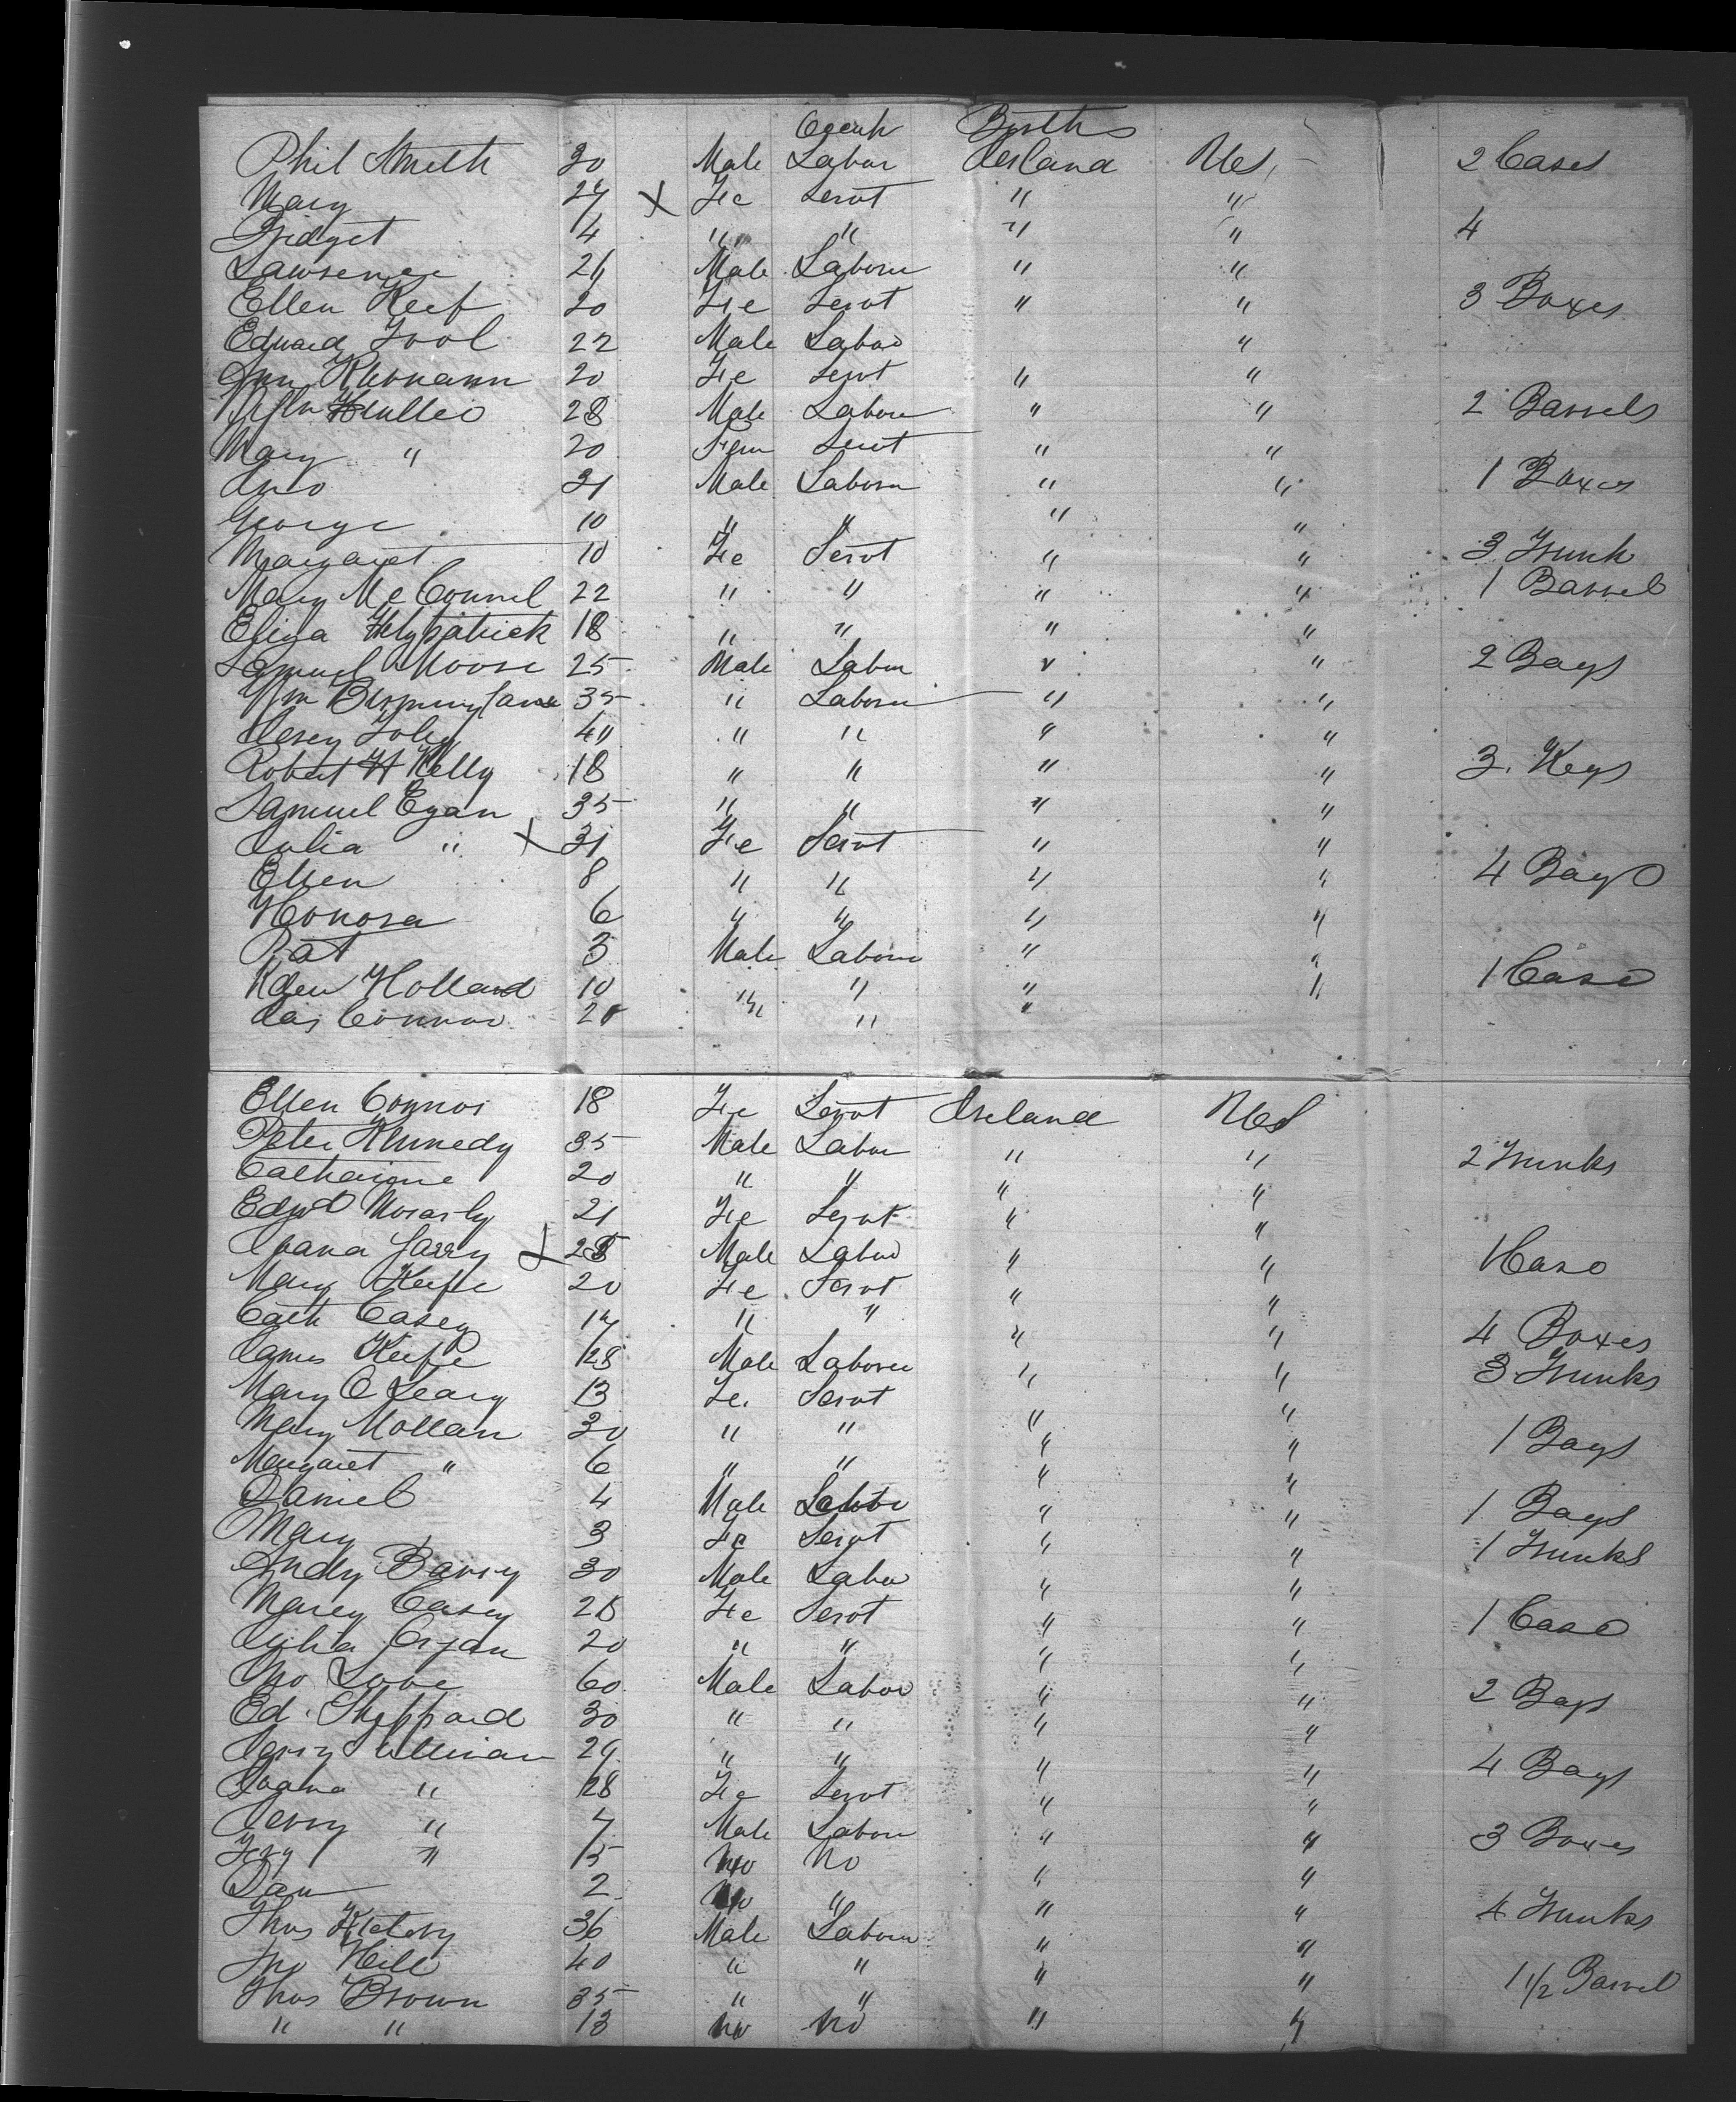 Occup Births
Phil Smith 30 Male Labor Ireland U S, 2 Cases
Mary 27 X Fe Servt " "
Bridget 4 " " " " 4
Lawrence 24 Male Laborer " "
Ellen Keef 20 Fe Servt " " 3 Boxes
Edward Tool 22 Male Labor "
Ann 20 Fe Servt " "
28 Male Labor " " 2 Barrels
Mary " 20 Fem Servt " "
Jno 21 Male Laborer " " 1 Boxes
George 10 " " " "
Margaret 10 Fe Servt " " 3 Trunk
Mary McConnel 22 " " " " 1 Barrel
Eliza Fitzpatrick 18 " " " "
Samuel Moore 25 Male Labor " " 2 Bags
Wm 35 " Laborer " "
Foley 40 " " " "
Robert H Kelly 18 " " " " 3 Kegs
Samuel Egan 35 " " " "
Julia " X 31 Fe Servt " "
Ellen 8 " " " " 4 Bags
Honora 6 " " " "
Pat 3 Male Laborer " "
Holland 10 " " " " 1 Case
Jas Connor 28 " " "
Ellen Connor 18 Fe Servt Ireland U S
Peter Kennedy 35 Male Labor " " 2 Trunks
Catharine 20 " " " "
Edwd Morarty 21 Fe Servt " "
Joana X 28 Male Labor " " 1 Case
Mary Keefe 20 Fe Servt " "
Cath Casey 17 " " " " 4 Boxes
James Keefe 28 Male Laborer " " 3 Trunks
Mary O Leary 13 Fe. Servt " "
Mary Mollan 30 " " " " 1 Bags
Margaret " 6 " " " "
Daniel 4 Male Labor " " 1 Bags
Mary 3 Fe Servt " " 1 Trunks
Andy Barry 30 Male Labor " "
Marey Casey 28 Fe Servt " " 1 Case
Julia 20 " " " "
Jno Love 60 Male Labor " " 2 Bags
Ed. Sheppard 30 " " " "
Jerry Sullivan 29 " " " " 4 Bags
Joana " 28 Fe Servt " "
Jerry " 7 Male Labour " " 3 Boxes
" 5 No No " "
Dan 2 No " " " 4 Trunks
Thos 36 Male Laborer " "
Jno Hill 40 " " " " 1 1/2 Barrel
Thos Brown 35 " " " "
" " 13 No No " "